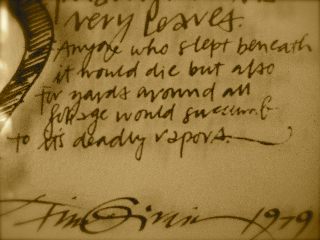 very leaves.
Anyone who slept beneath
it would die but also
for yards around all
foliage would succumb
to its deadly vapors.
Tim Girvin 1979